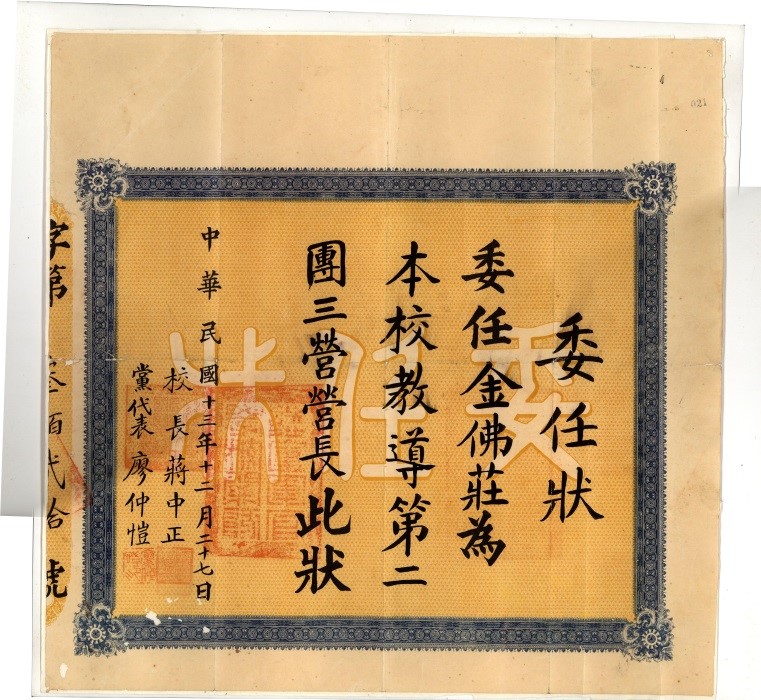 委任狀
委任金佛莊為
本校教導第二
團三營營長此狀
中華民國十三年十二月二十七日
校長蔣中正
黨代表廖仲愷
字第 叁佰弍拾 號
委任狀
021